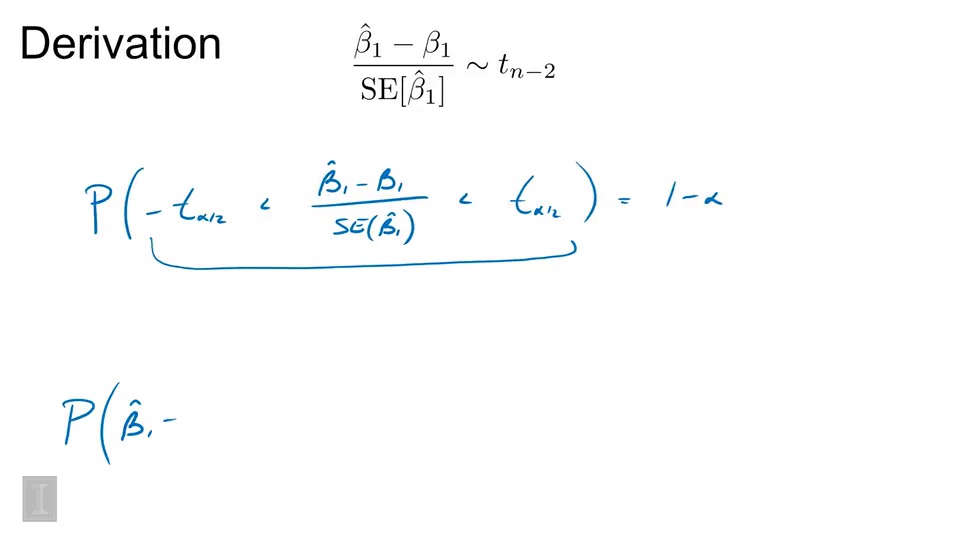 Derivation
(β̂₁ − β₁) / SE[β̂₁] ∼ tₙ₋₂
P( − t_{α/2} < (β̂₁ − β₁) / SE(β̂₁) < t_{α/2} ) = 1 − α
P( β̂₁ −
I